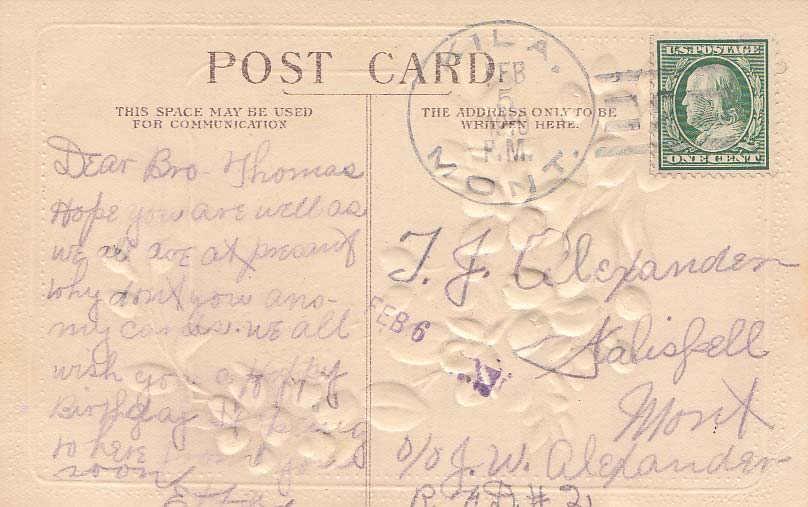 POST CARD.
THIS SPACE MAY BE USED
FOR COMMUNICATION
THE ADDRESS ONLY TO BE
WRITTEN HERE.
KILA.
FEB
5
P.M.
MONT.
U.S. POSTAGE
ONE CENT
Dear Bro Thomas
Hope you are well as
we al are at present
why dont you ans-
my cards. we all
wish you a Happy
Birthday
to here from you
soon
FEB 6
T. J. Alexander
Kalispell
Mont
c/o J. W. Alexander
R.F.D. # 2